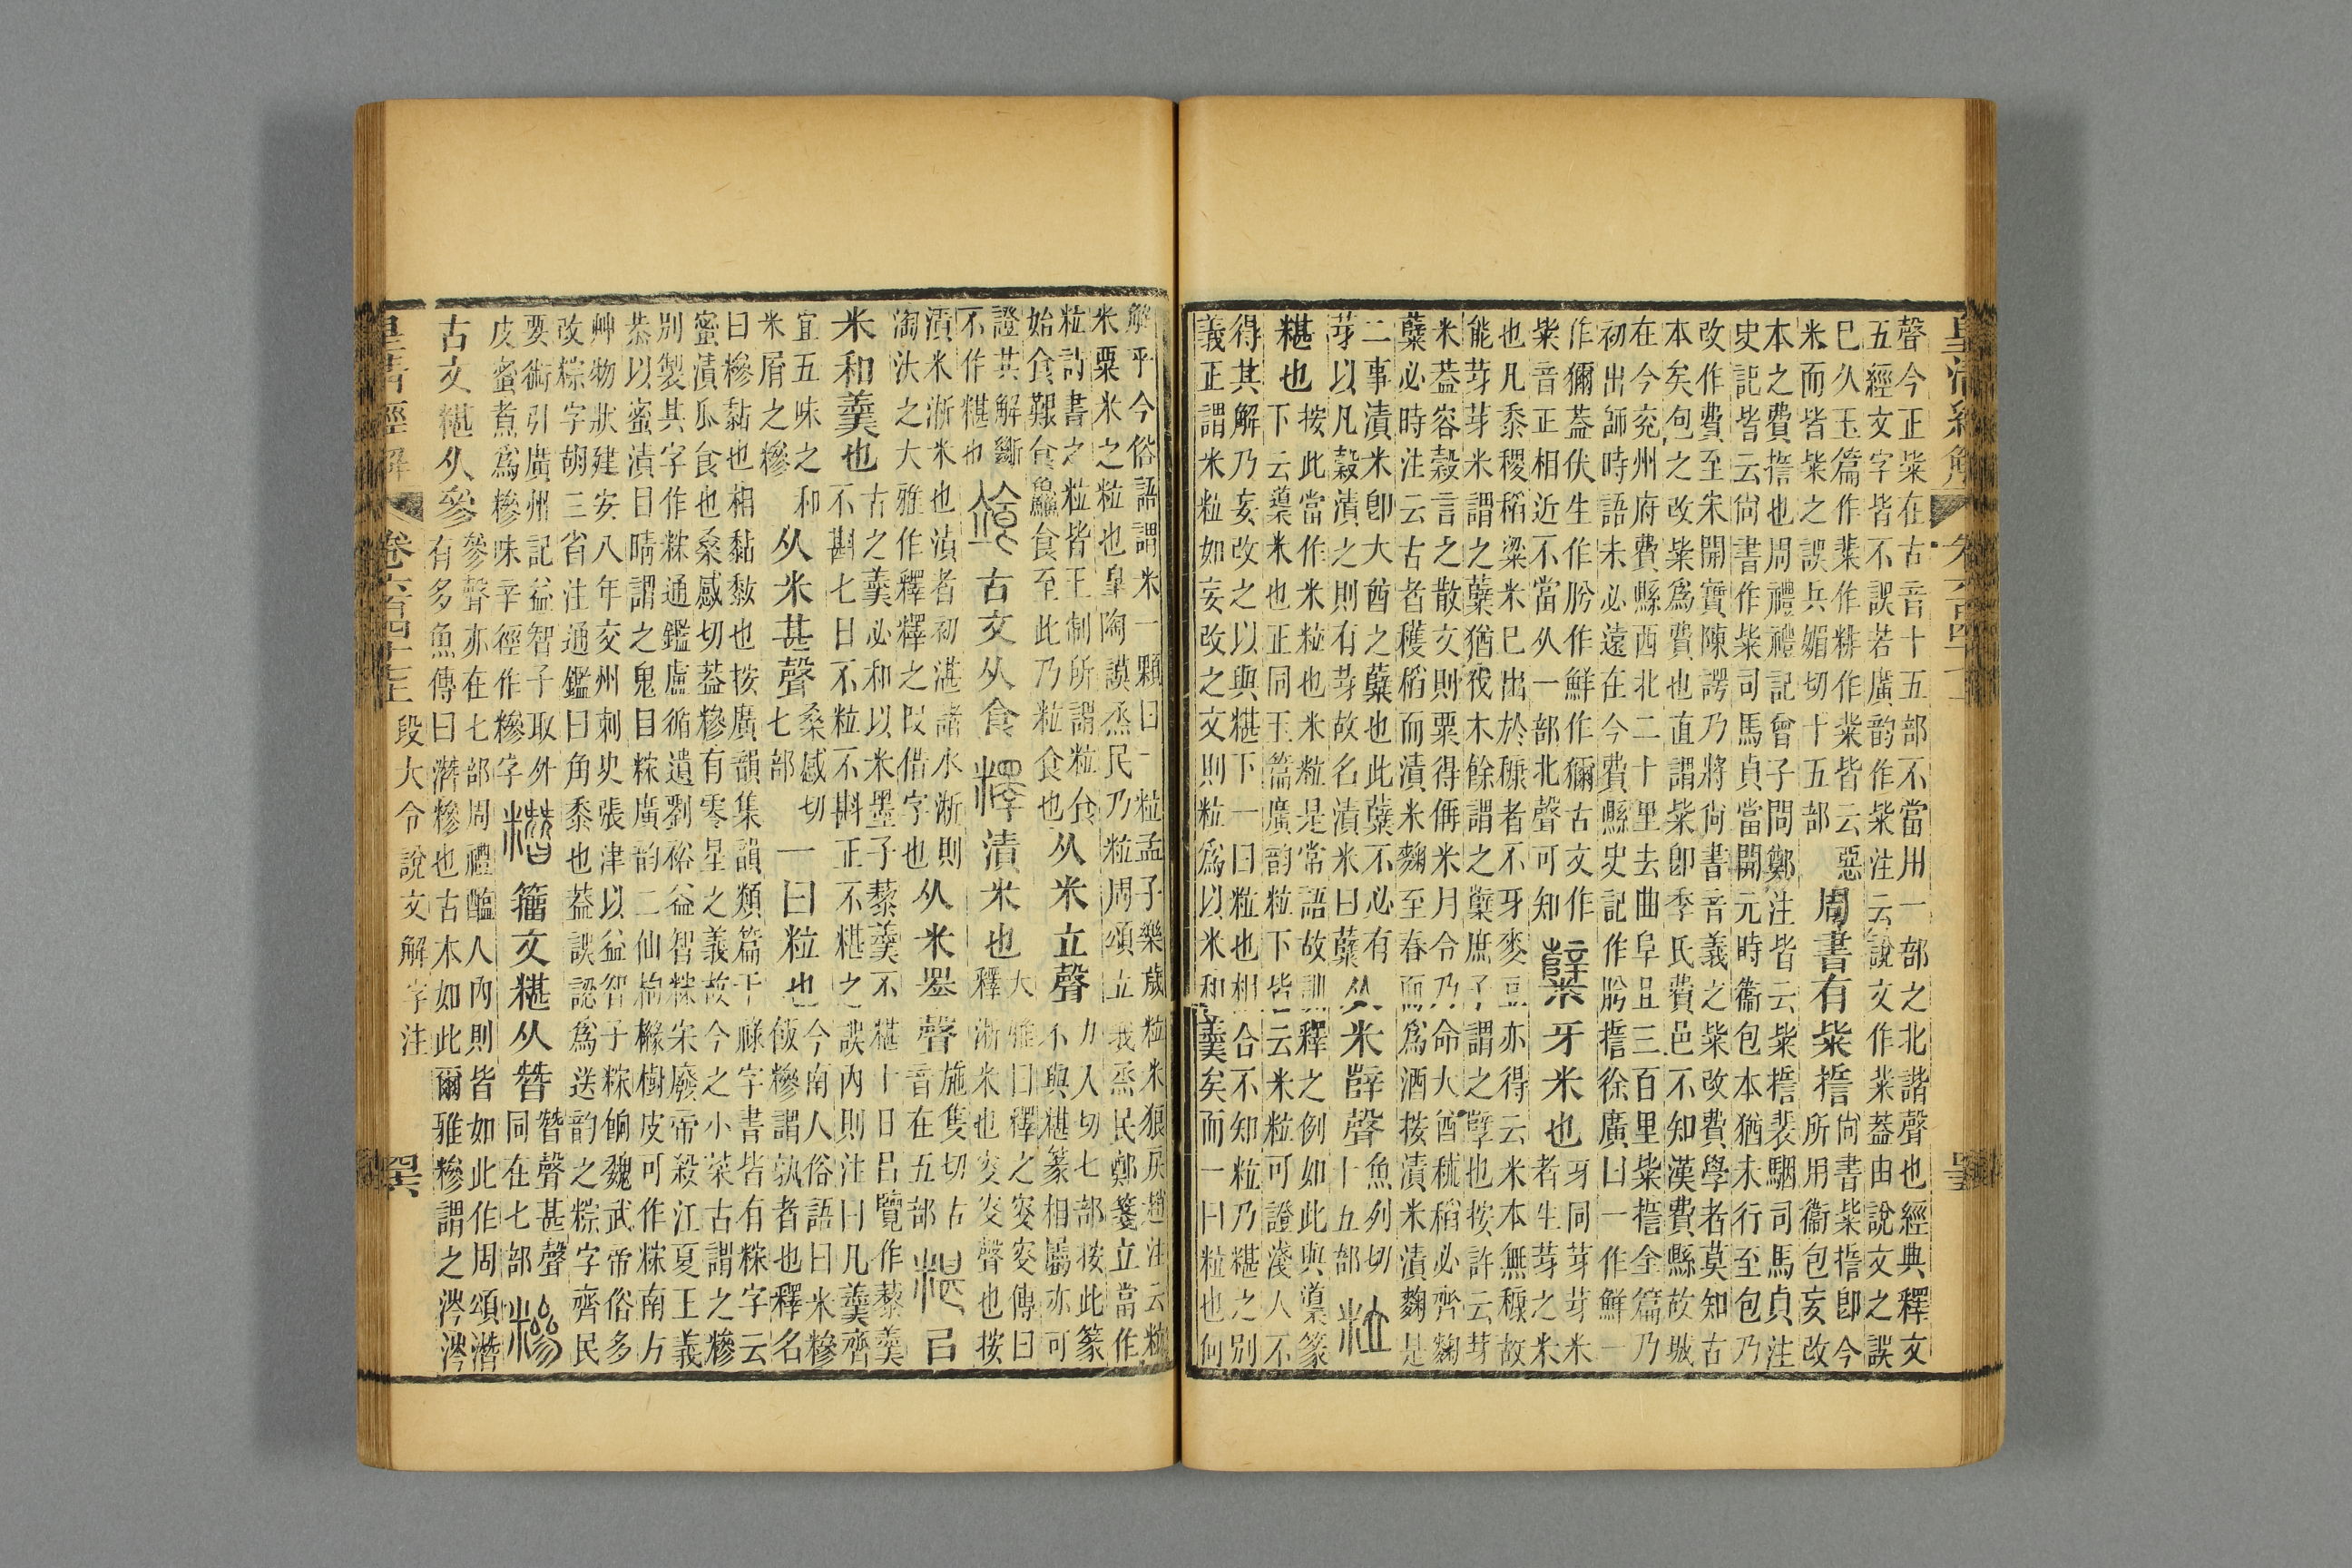 聲今正粊在古音十五部不當用一部之北諧聲也經典釋文
五經文字皆不誤若廣韵作粊注云說文作䊧蓋由說文之誤
巳久玉篇作䊧作粊作粊皆云惡
米而皆粊之誤兵媚切十五部
周書有粊誓
尙書粊誓卽今
所用衞包妄改
本之費誓也周禮禮記曾子問鄭注皆云粊誓裴駰司馬貞注
史記皆云尙書作粊司馬貞當開元時衞包本猶未行至包乃
改作費至宋開寶陳諤乃將尙書音義之粊改費學者莫知古
本矣包之改粊爲費也直謂粊卽季氏費邑不知漢費縣故城
在今兖州府費縣西北二十里去曲阜且三百里粊誓全篇乃
初出師時語未必遠在今費縣史記作肹誓徐廣曰一作鮮一
作獮蓋伏生作肹作鮮作獮古文作
粊音正相近不當从一部北聲可知
糱
牙米也
牙同芽芽米
者生芽之米
也凡黍稷稻粱米巳出於穅者不牙麥豆亦得云米本無穅故
能芽芽米謂之糱猶伐木餘謂之櫱庶子謂之孼也按許云芽
米蓋容穀言之散文則粟得偁米月令乃命大酋秫稻必齊麴
糱必時注云古者穫稻而漬米麴至春而爲酒按漬米漬麴是
二事漬米卽大酋之糱也此糱不必有
芽以凡穀漬之則有芽故名漬米曰糱
从米辥聲
魚列切
十五部
粒
糂也
按此當作米粒也米粒是常語故訓釋之例如此與㯻篆
下云㯻米也正同玉篇廣韵粒下皆云米粒可證淺人不
得其解乃妄改之以與糂下一曰粒也相合不知粒乃糂之別
義正謂米粒如妄改之文則粒爲以米和羹矣而一曰粒也何
解乎今俗語謂米一顆曰一粒孟子樂歲粒米狼戾趙注云粒
米粟米之粒也皋陶謨烝民乃粒周頌立我烝民鄭箋立當作
粒詩書之粒皆王制所謂粒食
始食艱食鱻食至此乃粒食也
从米立聲
力入切七部按此篆
不與糂篆相屬亦可
證其解斷
不作糂也
古文从食
釋
漬米也
大雅曰釋之叟叟傳曰
釋淅米也叟叟聲也按
漬米淅米也漬者初湛諸水淅則
淘汰之大雅作釋釋之叚借字也
从米睪聲
施隻切古
音在五部
糂
㠯
米和羹也
古之羹必和以米墨子藜羹不糂十日呂覽作藜羹
不斟七日不粒不斟正不糂之誤內則注曰凡羹齊
宜五味之和
米屑之糝
从米甚聲
桑感切
七部
一曰粒也
今南人俗語曰米糝
飯糝謂孰者也釋名
曰糝黏也相黏㪏也按廣韻集韻類篇干祿字書皆有䊉字云
蜜漬瓜食也桑感切蓋糝有零星之義故今之小菜古謂之糝
別製其字作䊉通鑑盧循遺劉裕益智䊉宋廢帝殺江夏王義
恭以蜜漬目睛謂之鬼目䊉廣韵二仙枸櫞樹皮可作䊉南方
艸物狀建安八年交州刺史張津以益智子䊉餉魏武帝俗多
改粽字胡三省注通鑑曰角黍也蓋誤認爲送韵之糉字齊民
要術引廣州記益智子取外
皮蜜煮爲糝味辛徑作糝字
籒文糂从朁
朁聲甚聲
同在七部
古文糂从參
參聲亦在七部周禮醢人內則皆如此作周頌潛
有多魚傳曰潛糝也古本如此爾雅糝謂之涔涔
皇清經解
卷六百四十七上
段大令說文解字注